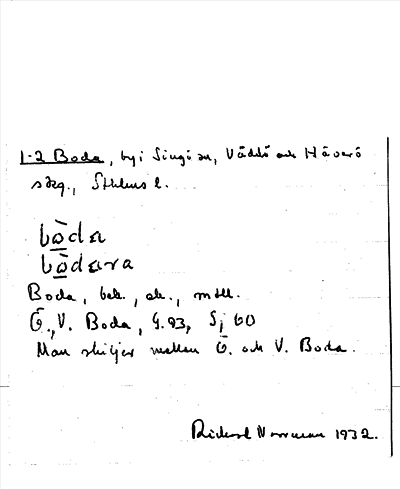 1-2 Boda, by i Singö sn, Väddö och Häverö
skg., Sthlms l.
bò̲da
bò̲dara
Boda, bek., ak., mtl.
Ö., V. Boda, G.93, Sj 60
Man skiljer mellan Ö. och V. Boda.
Rickard Norrman 1932.